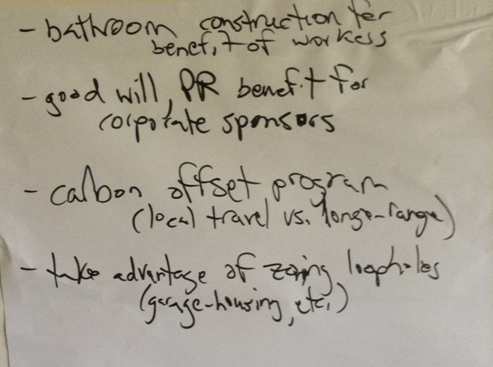 - bathroom construction for
benefit of workers
- good will, PR benefit for
corporate sponsors
- carbon offset program
(local travel vs. longe-range)
- take advantage of zoning loopholes
(garage-housing, etc.)